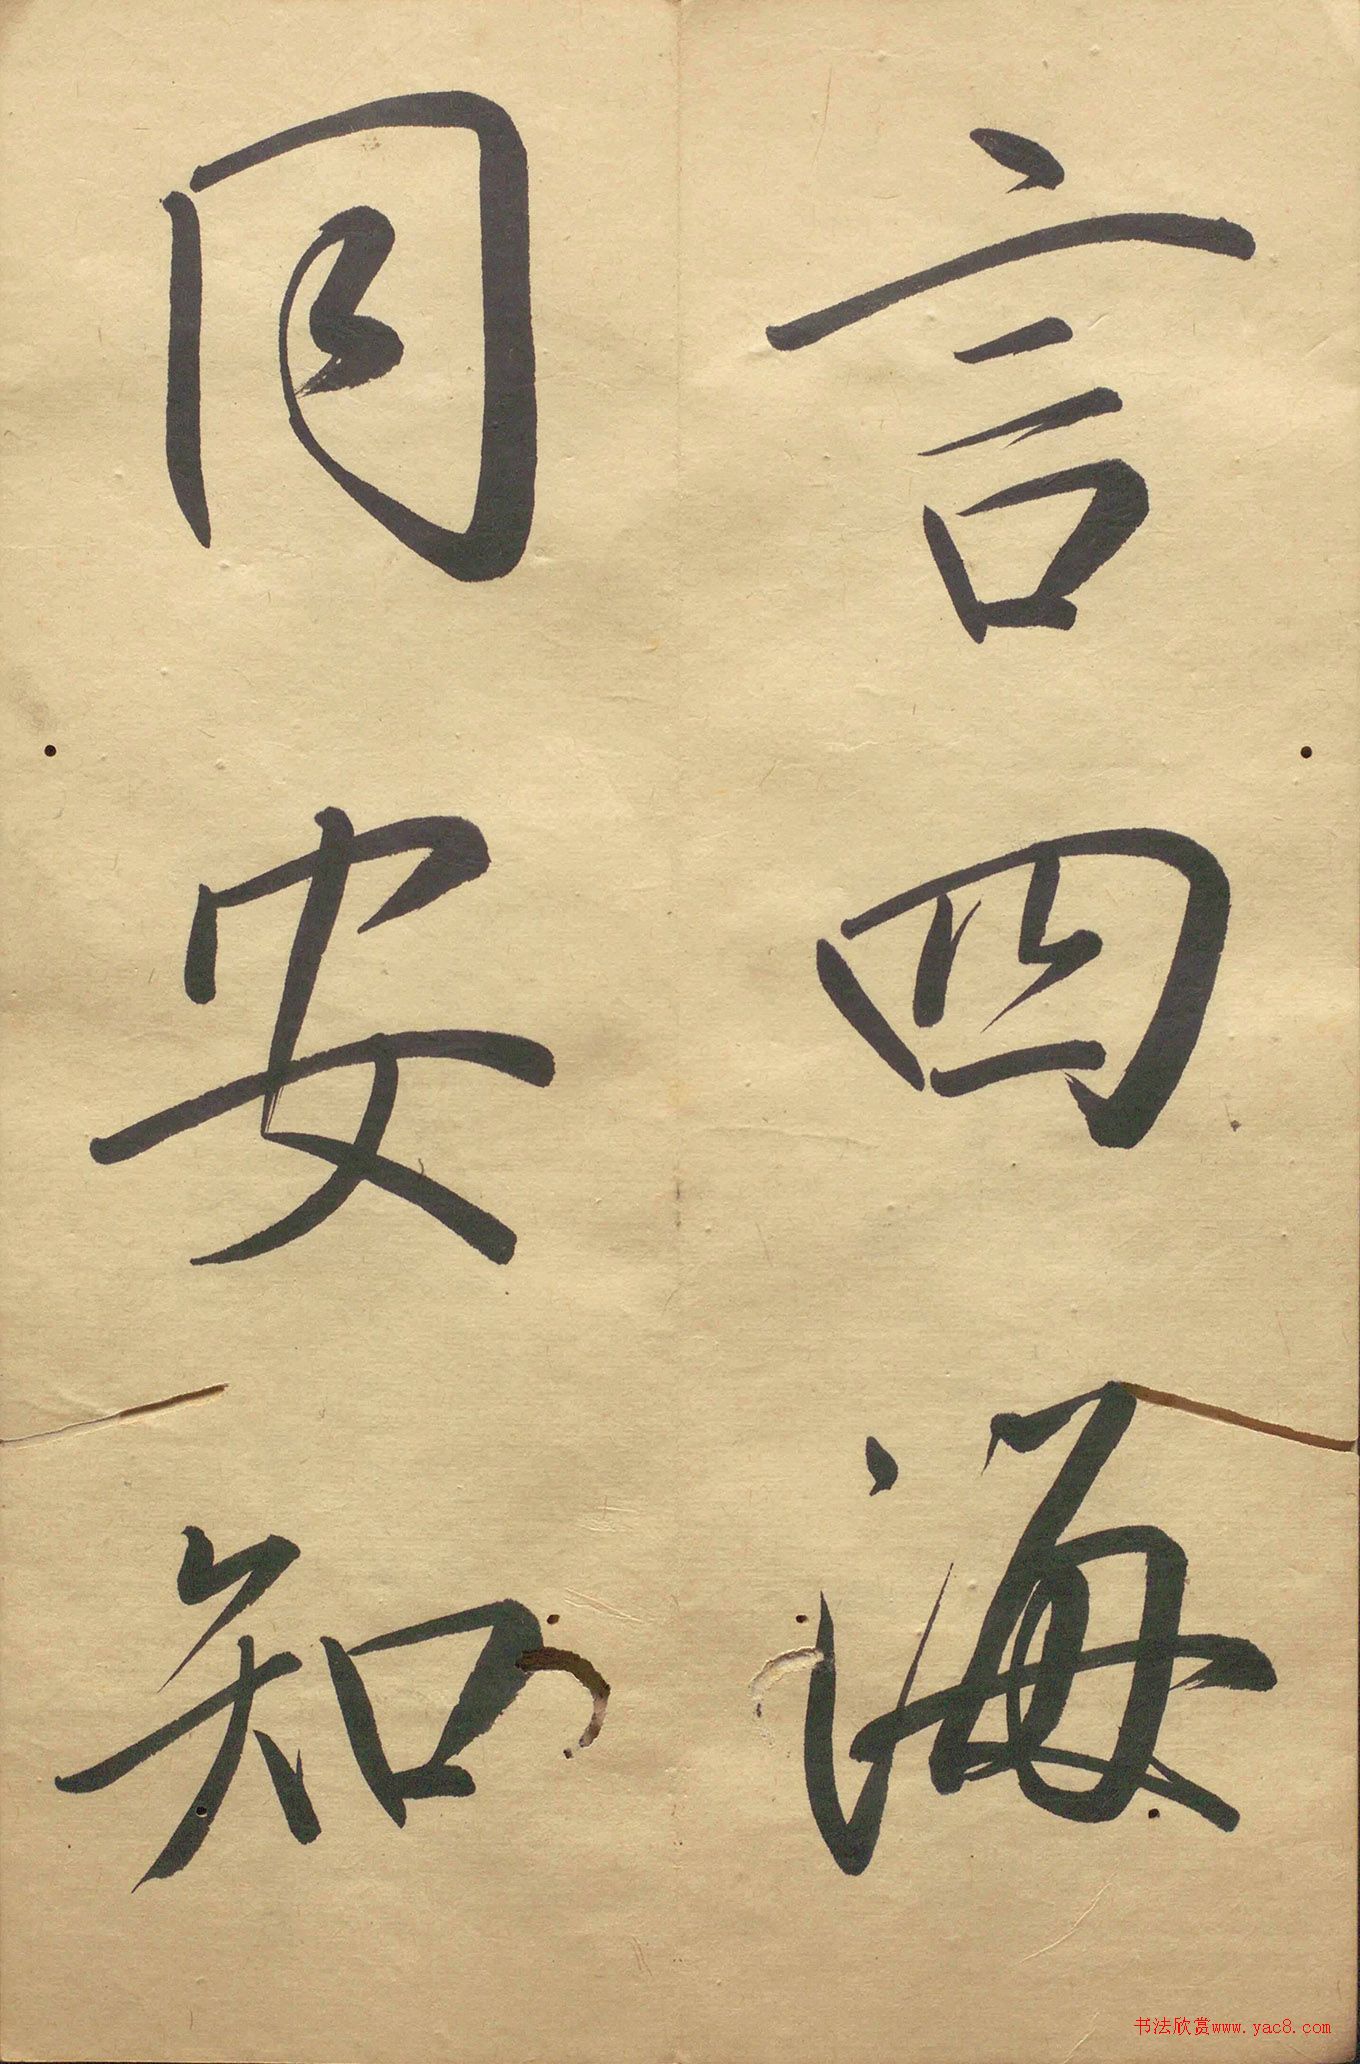 言四海
同安知
书法欣赏www.yac8.com